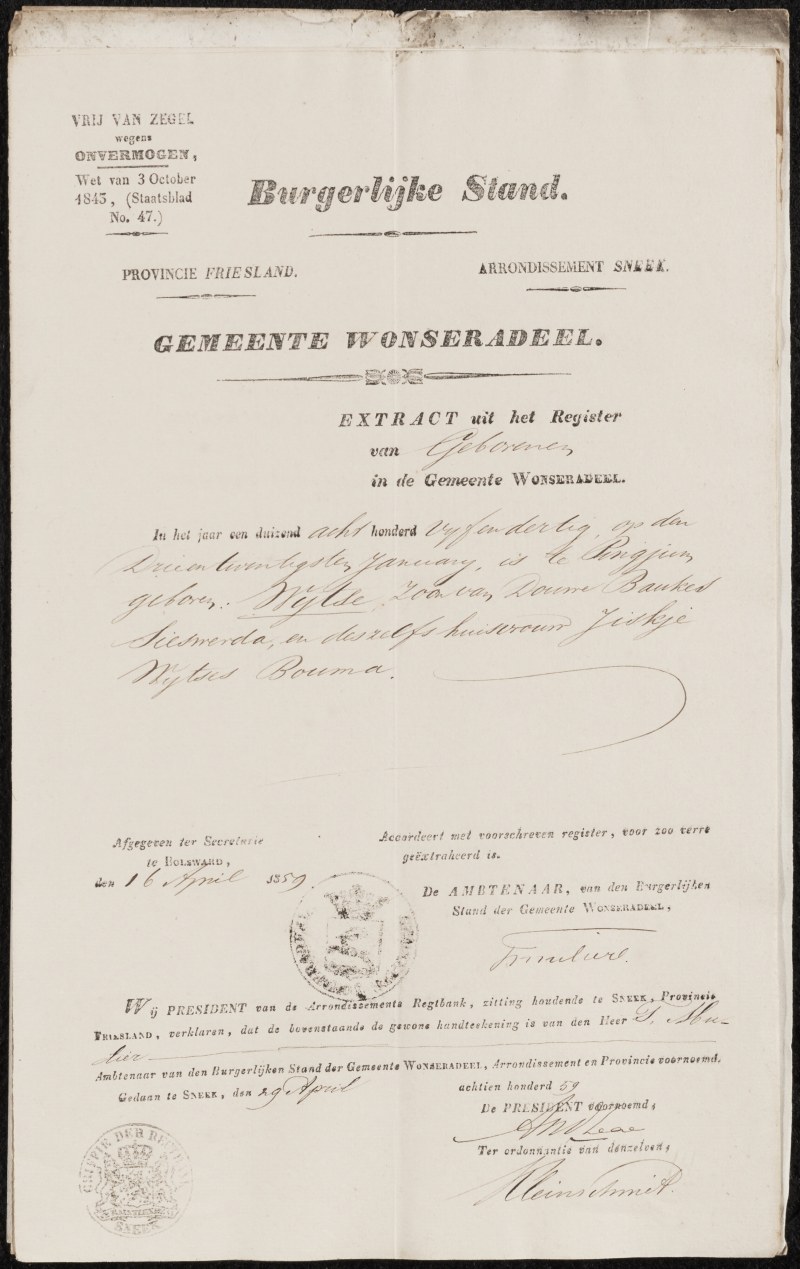 VRIJ VAN ZEGEL
wegens
ONVERMOGEN,
Wet van 3 October
1843, (Staatsblad
No. 47.)
Burgerlijke Stand.
PROVINCIE FRIESLAND.
ARRONDISSEMENT SNEEK.
GEMEENTE WONSERADEEL.
EXTRACT uit het Register
van Geborenen
in de Gemeente WONSERADEEL.
In het jaar een duizend acht honderd Vyfendertig, op den
Drieentwintigsten January, is te Pingjum
geboren: Wytse, Zoon van Douwe Baukes
Sieswerda, en deszelfs huisvrouw Jiskje
Wytses Bouma.
Afgegeven ter Secretarie
te BOLSWARD,
den 16 April 1859.
Accordeert met voorschreven register, voor zoo verre
geëxtraheerd is.
De AMBTENAAR, van den Burgerlijken
Stand der Gemeente WONSERADEEL,
Wij PRESIDENT van de Arrondissements Regtbank, zitting houdende te SNEEK, Provincie
FRIESLAND, verklaren, dat de bovenstaande de gewone handteekening is van den Heer
Ambtenaar van den Burgerlijken Stand der Gemeente WONSERADEEL, Arrondissement en Provincie voornoemd.
Gedaan te SNEEK, den 29 April achtien honderd 59
De PRESIDENT voornoemd,
Ter ordonnantie van denzelven,
Kleinschmit.
GRIFFIE DER REGTBANK
SNEEK